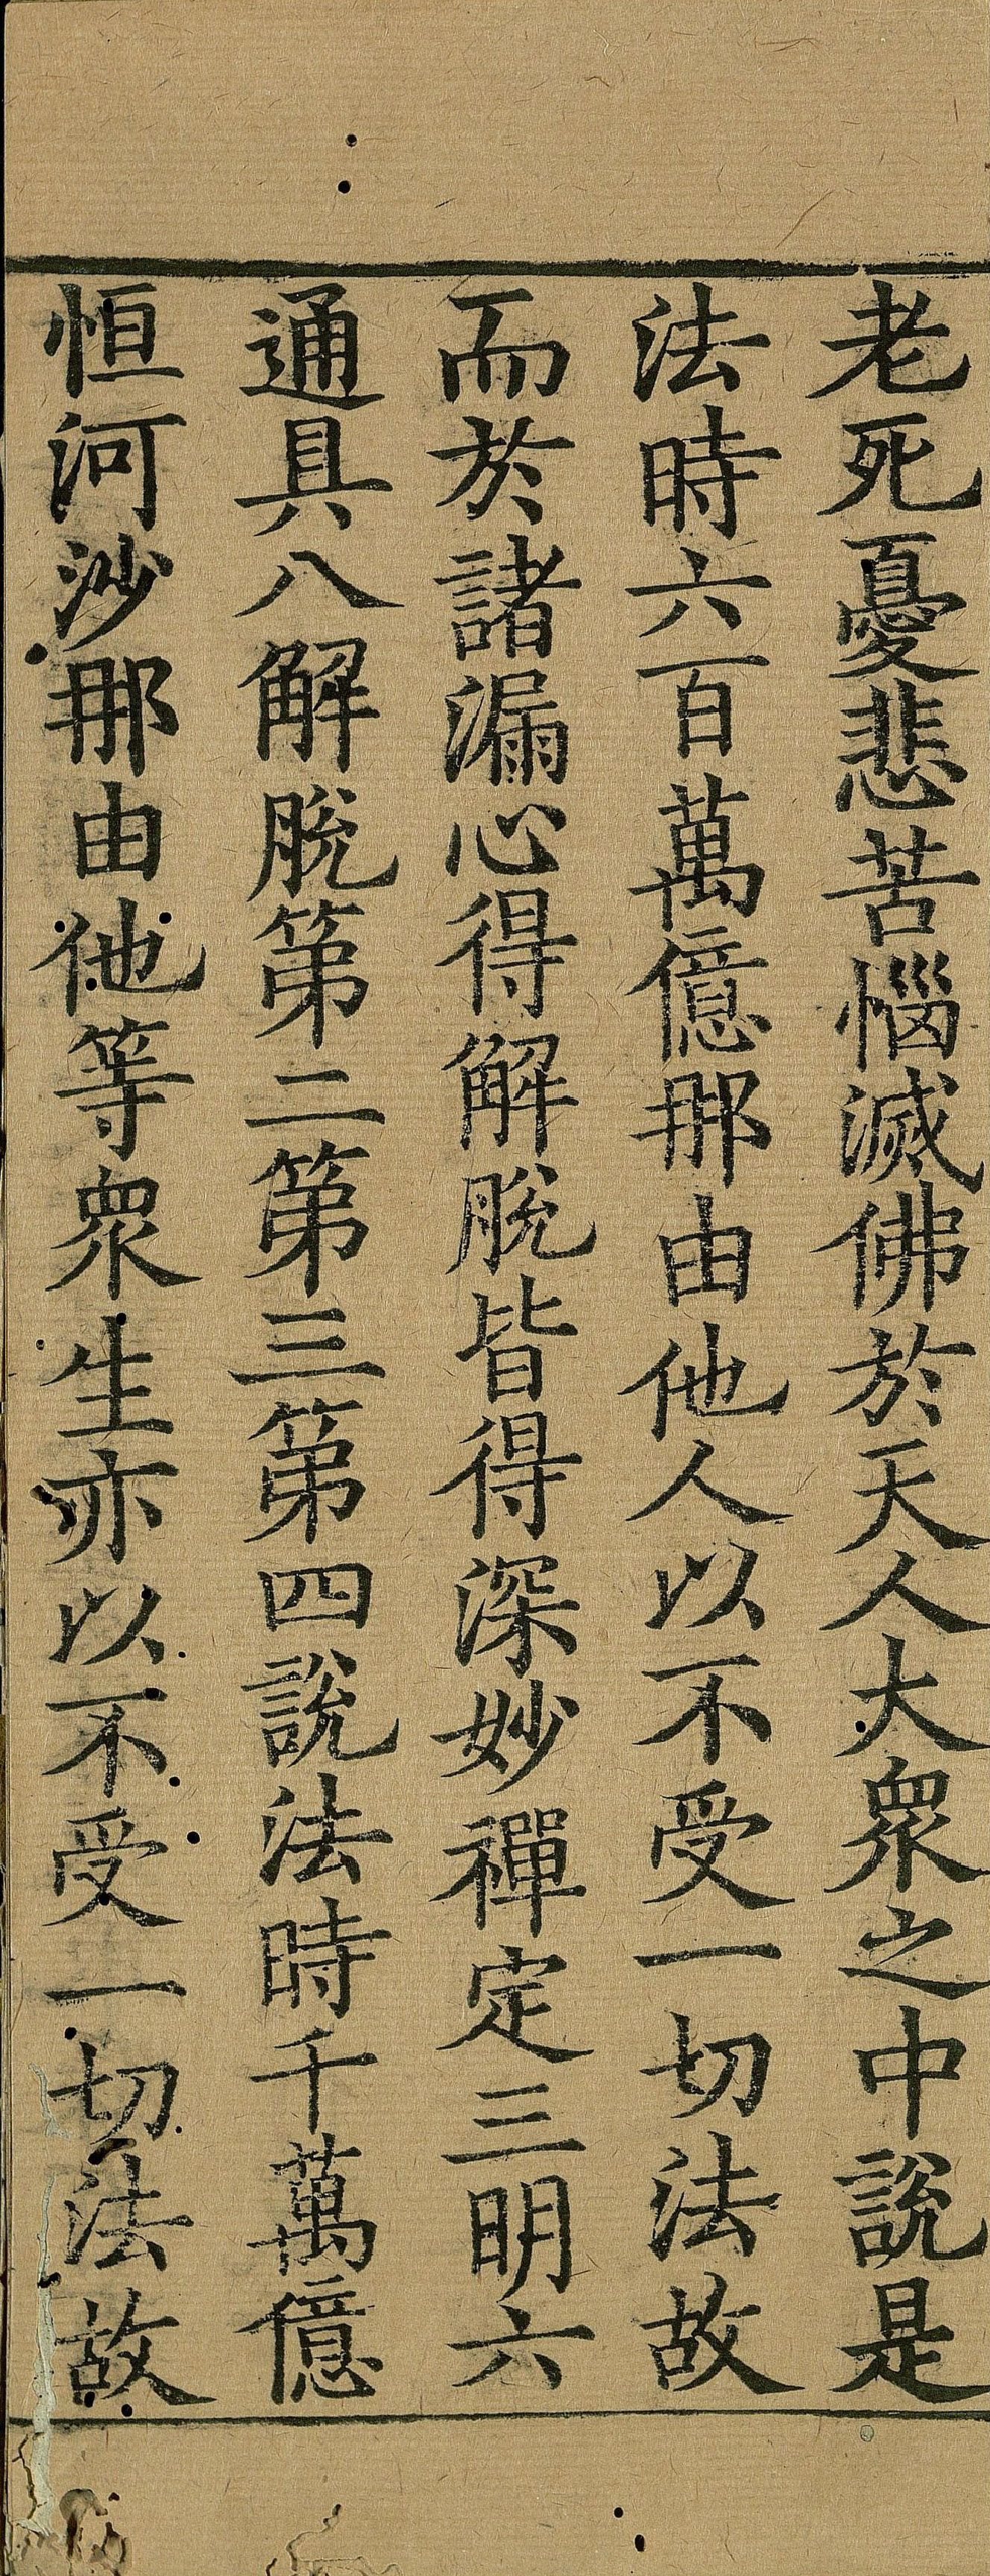 老死憂悲苦惱滅佛於天人大衆之中說是
法時六百萬億那由他人以不受一切法故
而於諸漏心得解脫皆得深妙禪定三明六
通具八解脫第二第三第四說法時千萬億
恒河沙那由他等衆生亦以不受一切法故